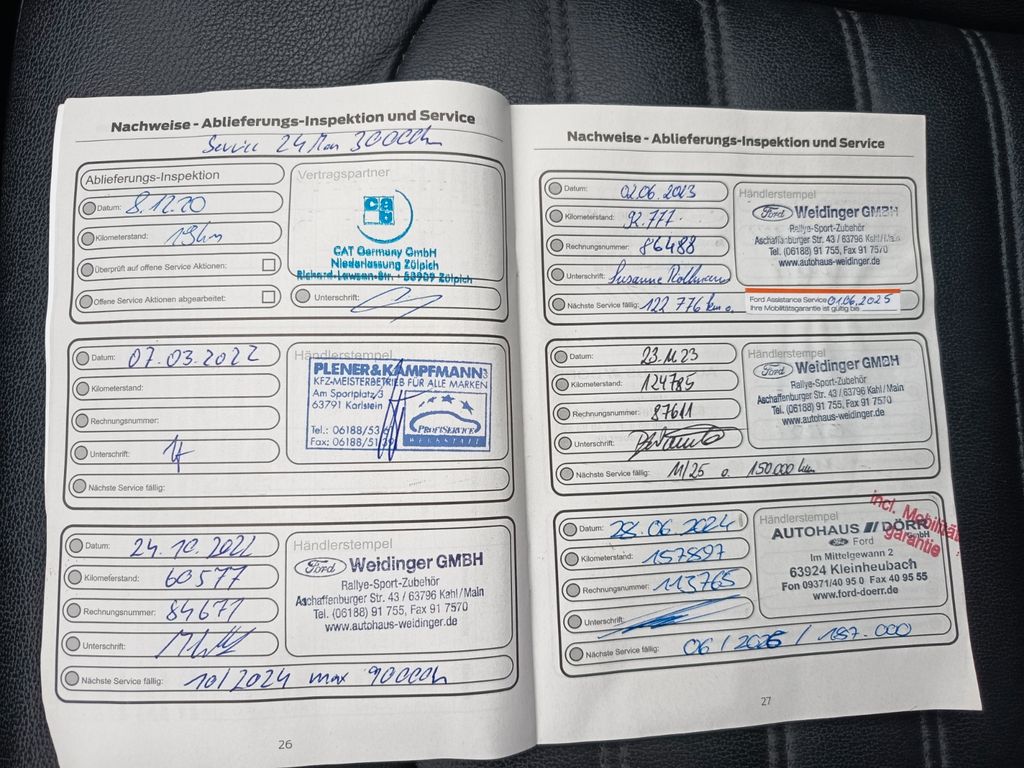 Nachweise - Ablieferungs-Inspektion und Service
Service 24 Mon 30000km
Ablieferungs-Inspektion
Datum: 8.12.20
Kilometerstand: 19km
Überprüft auf offene Service Aktionen:
Offene Service Aktionen abgearbeitet:
Vertragspartner
cat
CAT Germany GmbH
Niederlassung Zülpich
53909 Zülpich
Unterschrift:
Datum: 07.03.2022
Kilometerstand:
Rechnungsnummer:
Unterschrift:
Nächste Service fällig:
Händlerstempel
PLENER&KAMPFMANN
KFZ-MEISTERBETRIEB FÜR ALLE MARKEN
Am Sportplatz 3
63791 Karlstein
Tel.: 06188/53
Fax: 06188/51
PROFISERVICE
WERKSTATT
Datum: 24.10.2022
Kilometerstand: 60577
Rechnungsnummer: 84671
Unterschrift:
Nächste Service fällig: 10/2024 max 90000km
Händlerstempel
Ford Weidinger GMBH
Rallye-Sport-Zubehör
Aschaffenburger Str. 43 / 63796 Kahl/Main
Tel. (06188) 91 755, Fax 91 7570
www.autohaus-weidinger.de
26
Nachweise - Ablieferungs-Inspektion und Service
Datum: 02.06.2023
Kilometerstand: 92.777.
Rechnungsnummer: 86488
Unterschrift: Susanne
Nächste Service fällig: 122 776 km o.
Händlerstempel
Ford Weidinger GMBH
Rallye-Sport-Zubehör
Aschaffenburger Str. 43 / 63796 Kahl/Main
Tel. (06188) 91 755, Fax 91 7570
www.autohaus-weidinger.de
Ford Assistance Service 01.06.2025
Ihre Mobilitätsgarantie ist gültig bis
Datum: 23.11.23
Kilometerstand: 124785
Rechnungsnummer: 87611
Unterschrift:
Nächste Service fällig: 11/25 o. 150.000 km
Händlerstempel
Ford Weidinger GMBH
Rallye-Sport-Zubehör
Aschaffenburger Str. 43 / 63796 Kahl/Main
Tel. (06188) 91 755, Fax 91 7570
www.autohaus-weidinger.de
Datum: 28.06.2024
Kilometerstand: 157897
Rechnungsnummer: 113765
Unterschrift:
Nächste Service fällig: 06/2026 / 187.000
Händlerstempel
AUTOHAUS DÖRR GmbH
Ford
Im Mittelgewann 2
63924 Kleinheubach
Fon 09371/40 95 0 Fax 40 95 55
www.ford-doerr.de
incl. Mobilitäts
garantie
27